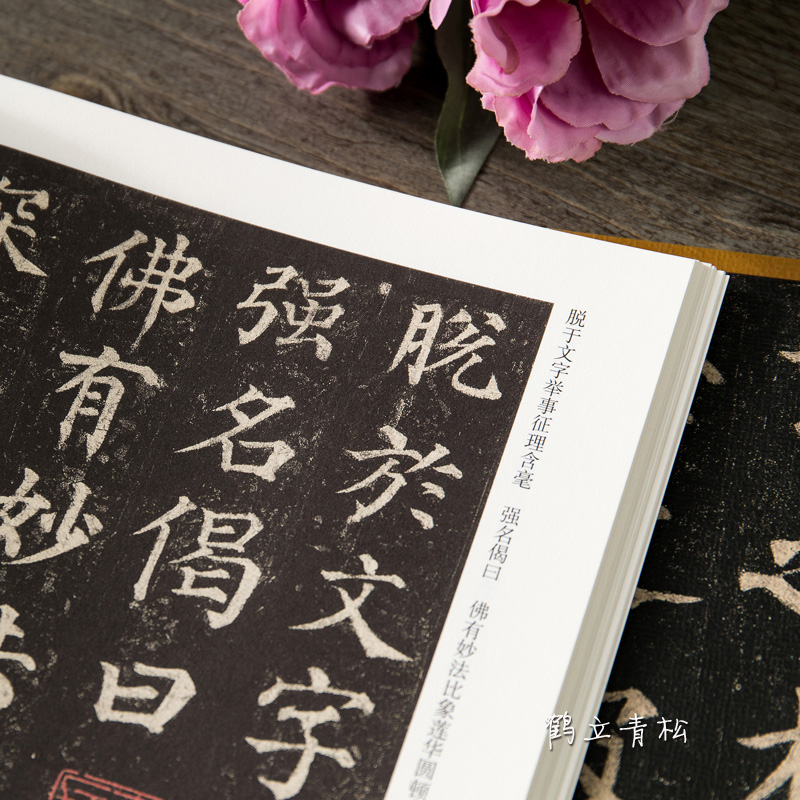 脱於文字
强名偈曰
佛有妙法
深
脱于文字举事征理含毫 强名偈曰 佛有妙法比象莲华圆顿
鹤立青松